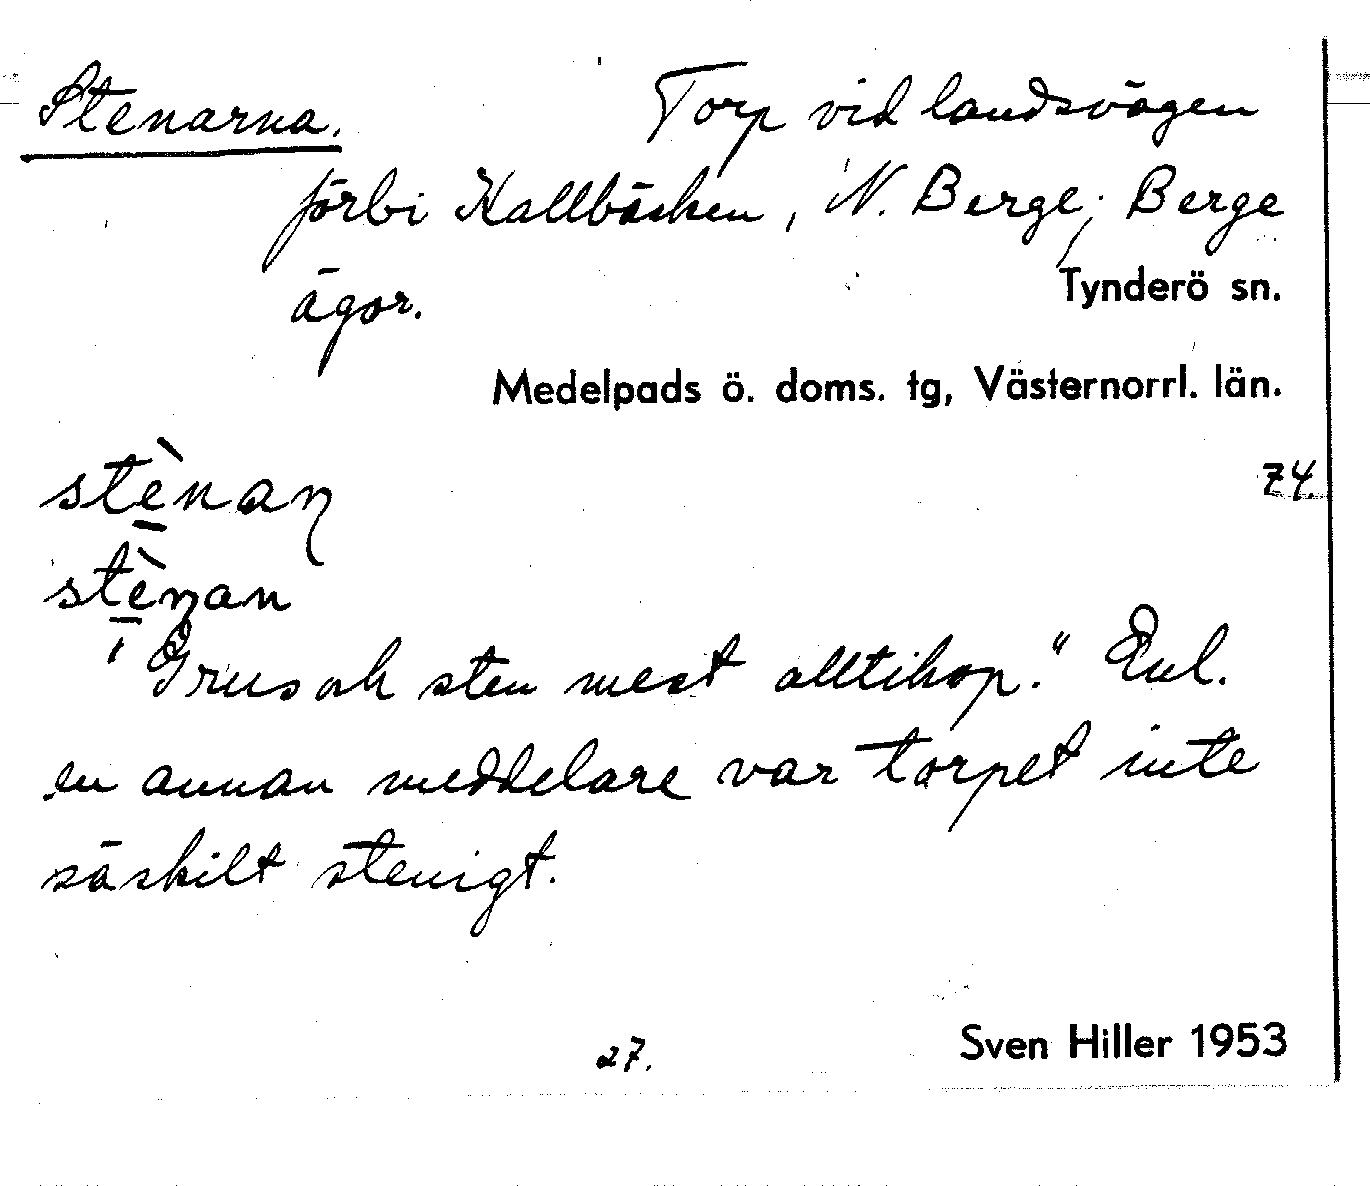 Stenarna. Torp vid landsvägen
förbi Kallbäcken, N. Berge; Berge
ägor. Tynderö sn.
Medelpads ö. doms. tg, Västernorrl. län.
stènaƞ
74.
stèƞan
"Grus och sten mest alltihop." Enl.
en annan meddelare var torpet inte
säskilt stenigt.
27. Sven Hiller 1953